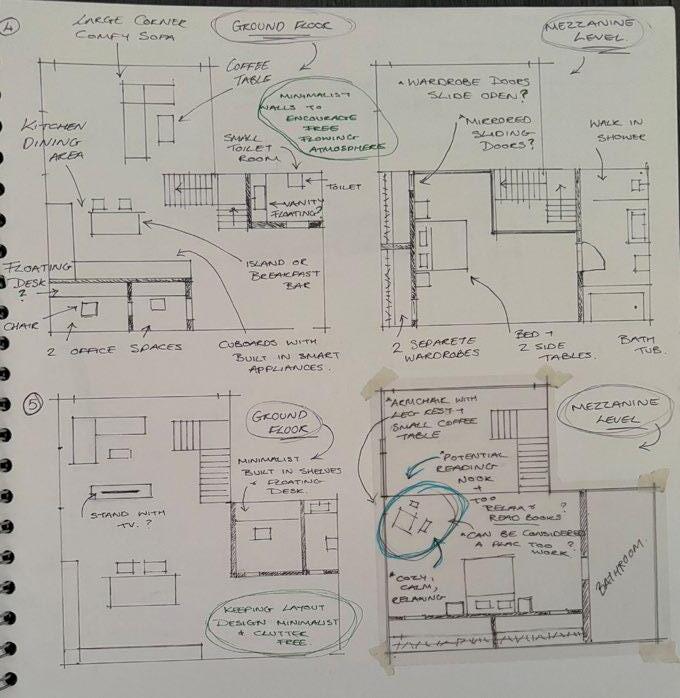 4
LARGE CORNER
COMFY SOFA
GROUND FLOOR
COFFEE
TABLE
MINIMALIST
WALLS TO
ENCOURAGE
FREE
FLOWING
ATMOSPHERE
KITCHEN
DINING
AREA
SMALL
TOILET
ROOM
TOILET
VANITY
FLOATING?
ISLAND OR
BREAKFAST
BAR
FLOATING
DESK
?
CHAIR
2 OFFICE SPACES
CUBOARDS WITH
BUILT IN SMART
APPLIANCES.
MEZZANINE
LEVEL.
*WARDROBE DOORS
SLIDE OPEN?
*MIRRORED
SLIDING
DOORS?
WALK IN
SHOWER
2 SEPARETE
WARDROBES
BED +
2 SIDE
TABLES.
BATH
TUB.
5
GROUND
FLOOR
MINIMALIST
BUILT IN SHELVES
+ FLOATING
DESK.
STAND WITH
TV. ?
KEEPING LAYOUT
DESIGN MINIMALIST
& CLUTTER
FREE
MEZZANINE
LEVEL
*ARMCHAIR WITH
LEG REST +
SMALL COFFEE
TABLE
*POTENTIAL
READING
NOOK
+
TOO
RELAX & ?
READ BOOKS
*CAN BE CONSIDERED
A PLAC TOO ?
WORK
*COZY,
CALM,
RELAXING
BATHROOM.